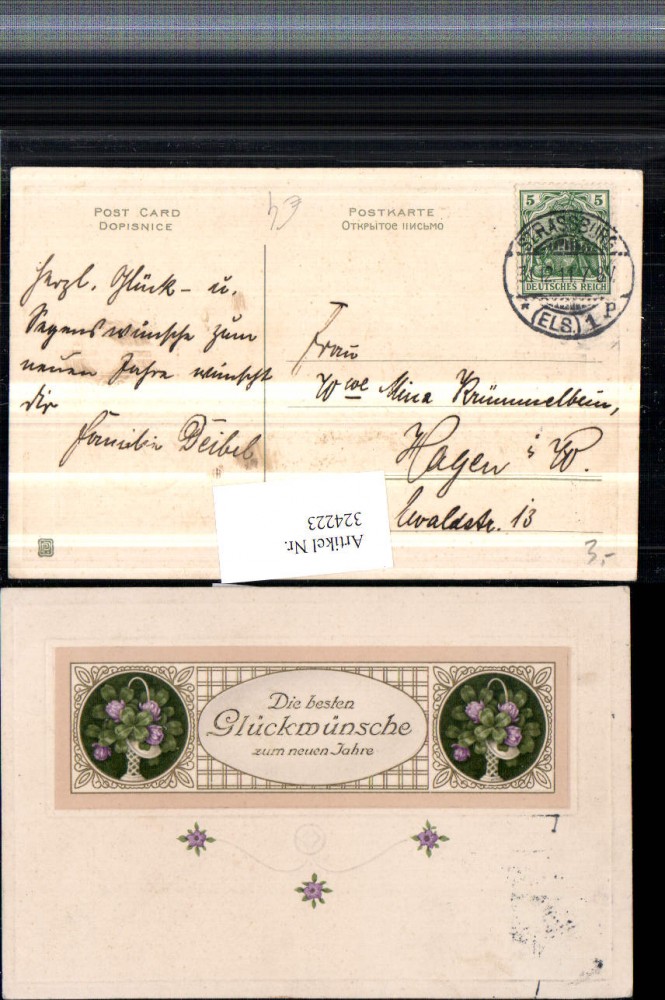 POST CARD
DOPISNICE
POSTKARTE
ОТКРЫТОЕ ПИСЬМО
5 5
DEUTSCHES REICH
STRASSBURG
31.12.11.7-8V.
* (ELS.) 1 P
Herzl. Glück- u.
Segenswünsche zum
neuen Jahre wünscht
dir
Familie Deibel
Frau
Wwe Mina Krümmelbein,
Hagen i. W.
Ewaldstr. 13
3,-
Artikel Nr.
324223
Die besten
Glückwünsche
zum neuen Jahre